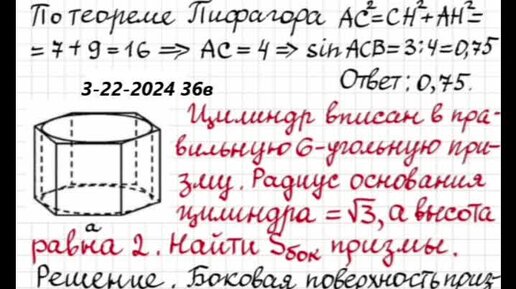 По теореме Пифагора AC²=CH²+AH²=
=7+9=16 ⇒ AC=4 ⇒ sin ACB=3:4=0,75
Ответ: 0,75.
3-22-2024 36в
Цилиндр вписан в пра-
вильную 6-угольную при-
зму. Радиус основания
цилиндра = √3, а высота
a
равна 2. Найти Sбок призмы.
Решение. Боковая поверхность приз-